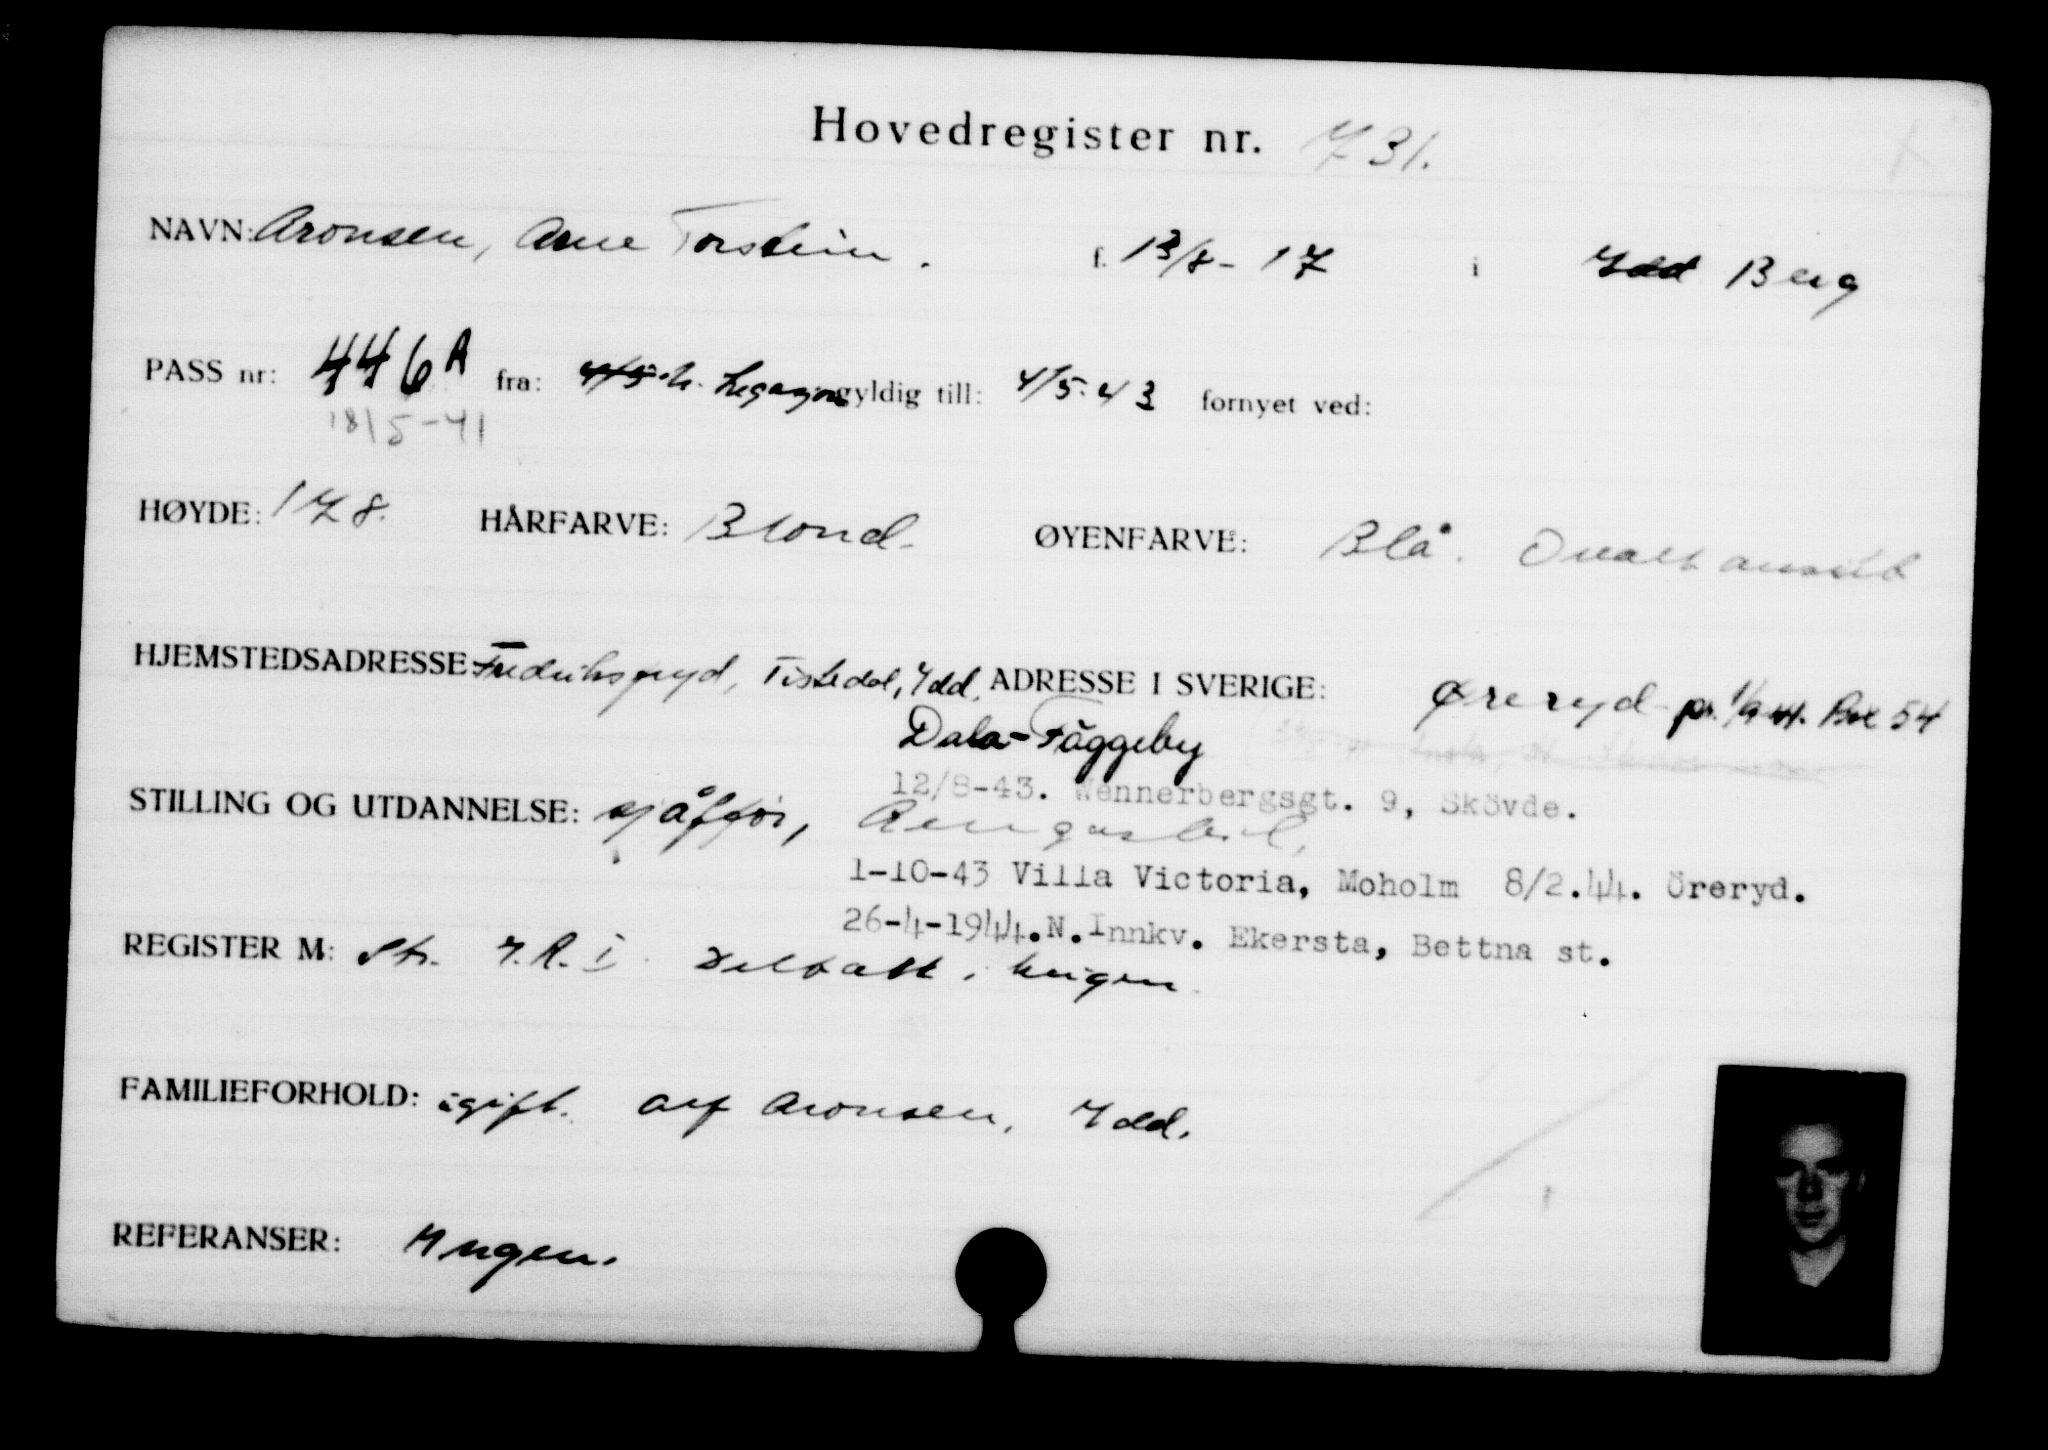 Hovedregister nr. 731.
NAVN: Aronsen, Arne Torstein. f. 13/8-17 i Idd Berg
PASS nr: 446A fra: legasjon gyldig till: 4/5.43 fornyet ved:
18/5-41
HØYDE: 178. HÅRFARVE: Blond. ØYENFARVE: Blå. Ovalt ansikt
HJEMSTEDSADRESSE: Tistedal, Idd. ADRESSE I SVERIGE: Øreryd pr. Box 54
Dala-Fäggeby
12/8-43. Wennerbergsgt. 9, Skövde.
STILLING OG UTDANNELSE: sjåffør,
1-10-43 Villa Victoria, Moholm 8/2.44. Öreryd.
26-4-1944.N.Innkv. Ekersta, Bettna st.
REGISTER M: I.R. I Deltatt i krigen.
FAMILIEFORHOLD: ugift. Aronsen, Idd.
REFERANSER: Ingen.